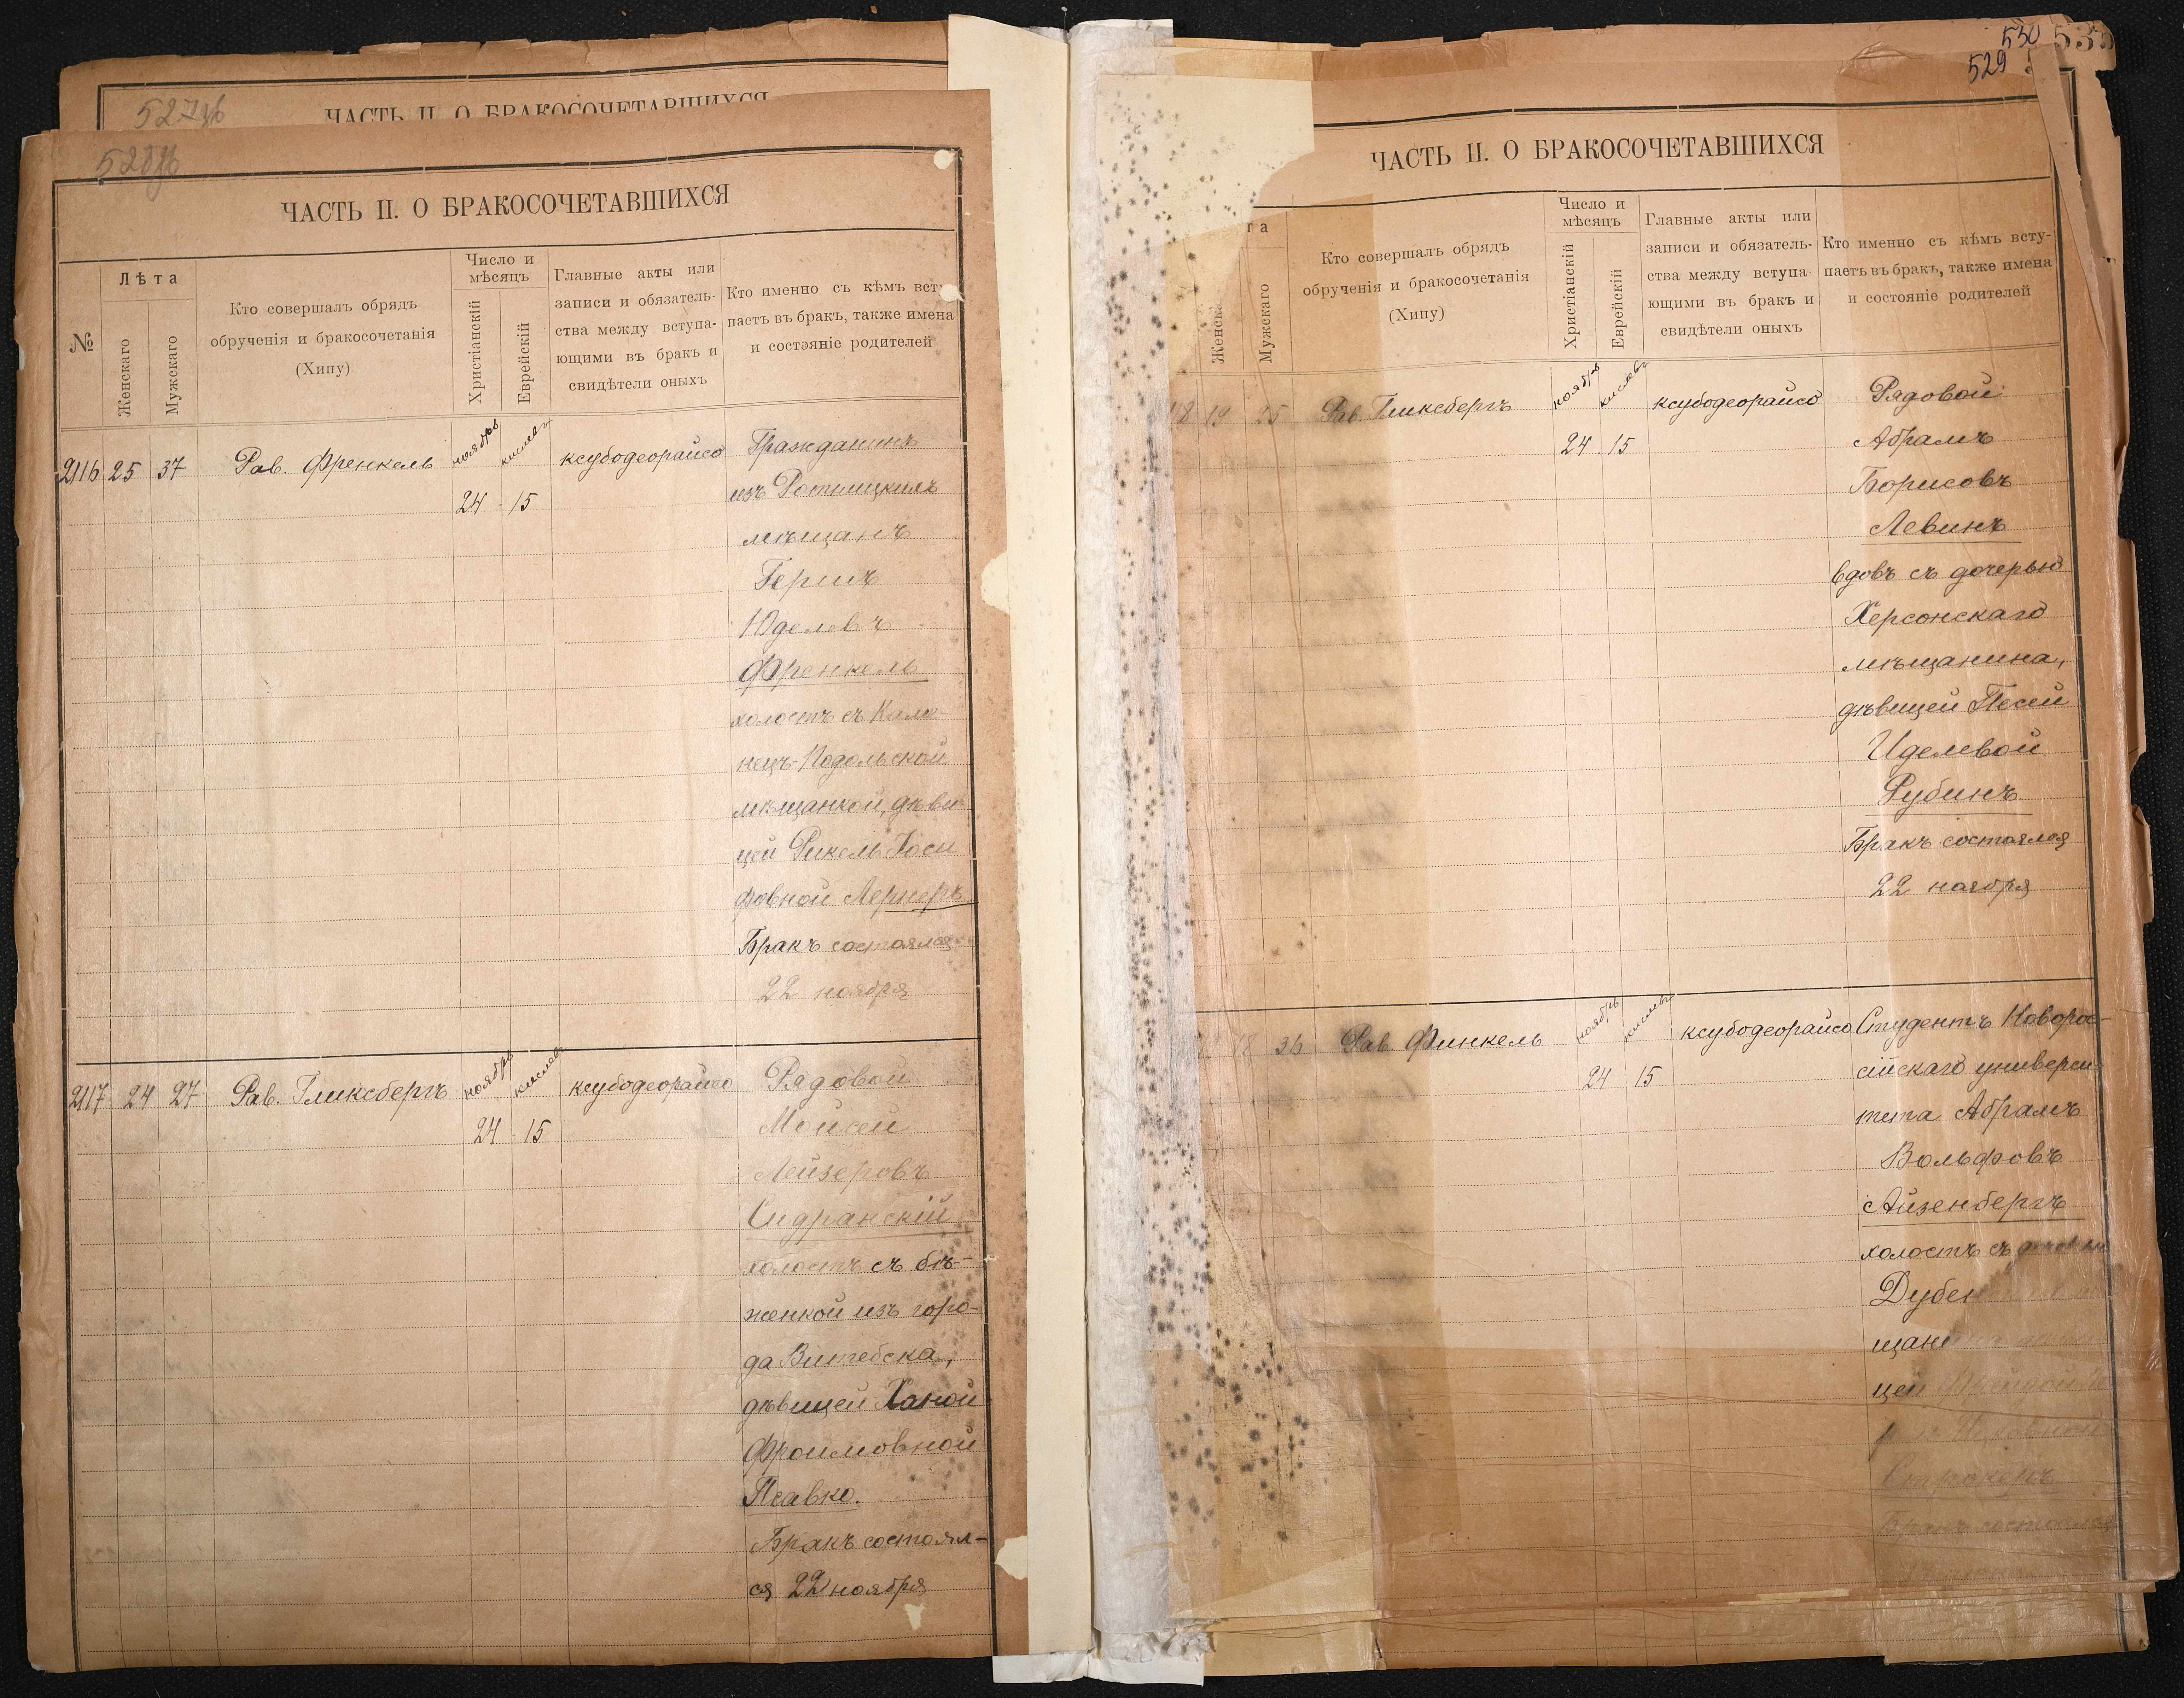 527
ЧАСТЬ II. О БРАКОСОЧЕТАВШИХСЯ
528
ЧАСТЬ II. О БРАКОСОЧЕТАВШИХСЯ
№
Лѣта
Женскаго
Мужскаго
Кто совершалъ обрядъ
обрученія и бракосочетанія
(Хипу)
Число и
мѣсяцъ
Христіанскій
Еврейскій
Главные акты или
записи и обязатель-
ства между вступа-
ющими въ бракъ и
свидѣтели оныхъ
Кто именно съ кѣмъ всту
паетъ въ бракъ, также имена
и состояніе родителей
2116 25 37 Рав. Френкель ноябрь кислевъ ксубодеорайсо Гражданинъ
24 15 изъ Ротницкихъ
мѣщанъ
Гершъ
Юделевъ
Френкель
холостъ съ Каме-
нецъ-Подольской
мѣщанкой, дѣви-
цей Рикель Іоси
фовной Лернеръ
Бракъ состоялся
22 ноября
2117 24 27 Рав. Гликсбергъ ноябрь кислевъ ксубодеорайсо Рядовой
24 15 Мойсей
Лейзеровъ
Сидранскій
холостъ съ бѣ-
женкой изъ горо-
да Витебска,
дѣвицей Ханой
Фроимовной
Псавко.
Бракъ состоял-
ся 22 ноября
530
529
535
ЧАСТЬ II. О БРАКОСОЧЕТАВШИХСЯ
та
Женска
Мужскаго
Кто совершалъ обрядъ
обрученія и бракосочетанія
(Хипу)
Число и
мѣсяцъ
Христіанскій
Еврейскій
Главные акты или
записи и обязатель-
ства между вступа
ющими въ бракъ и
свидѣтели оныхъ
Кто именно съ кѣмъ всту-
паетъ въ бракъ, также имена
и состояніе родителей
18 19 25 Рав. Гликсбергъ ноябрь кислевъ ксубодеорайсо Рядовой
24 15 Абрамъ
Борисовъ
Левинъ
вдовъ съ дочерью
Херсонскаго
мѣщанина,
дѣвицей Песей
Иделевой
Рубинъ
Бракъ состоялся
22 ноября
18 26 Рав. Финкель ноябрь кислевъ ксубодеорайсо Студентъ Новорос-
24 15 сійскаго универси-
тета Абрамъ
Вольфовъ
Айзенбергъ
холостъ съ дочерью
Дубен
щани
цей
Ицковной
Строкеръ
Бракъ состоялся